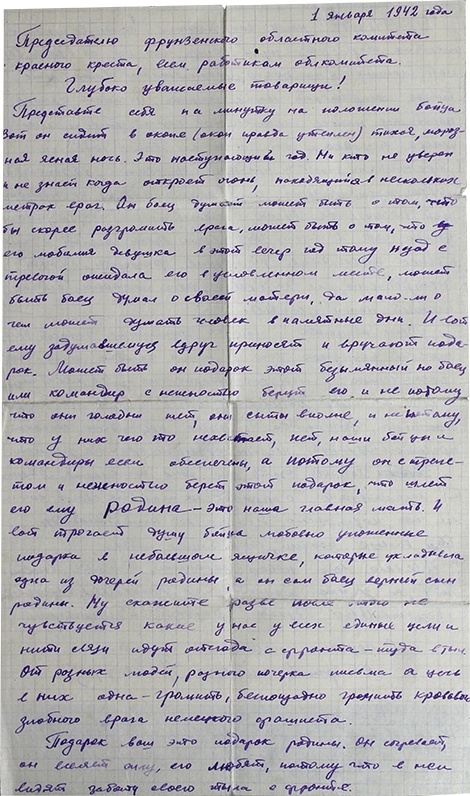 1 января 1942 года
Председателю фрунзенского областного комитета
красного креста, всем работникам обкомитета.
Глубоко уважаемые товарищи!
Представте себя на минутку на положении бойца
Вот он сидит в окопе (окоп правда утеплен) тихая, мороз-
ная ясная ночь. Это наступающий год. Ни кто не уверен
и не знает когда откроет огонь, находящийся в нескольких
метрах враг. Он боец думает может быть о том, что
бы скорее разгромить врага, может быть о том, что
его любимая девушка в этот вечер год тому назад с
тревогой ожидала его в условленном месте, может
быть боец думал о своей матери, да мало-ли о
чем может думать человек в памятные дни. И вот
ему задумавшемуся вдруг приносят и вручают пода-
рок. Может быть он подарок этот безымянный но боец
или командир с нежностью берут его и не потому
что они голодны нет, они сыты вполне, и не потому,
что у них чего то нехватает, нет, наши бойцы и
командиры всем обеспечены, а потому он с трепе-
том и нежностью берет этот подарок, что шлет
его ему Родина – это наша главная мать. И
вот трогает душу бойца любовно уложенные
подарки в небольшом ящичке, которые укладывала
одна из дочерей родины, а он сам боец верный сын
родины. Ну скажите разве после этого не
чувствуется какие у нас у всех единые цели и
нити связи идут отсюда с фронта – туда в тыл.
От разных людей, разного почерка письма а цель
в них одна – громить, беспощадно громить кровавого
злобного врага немецкого фашиста.
Подарок ваш это подарок родины. Он согревает,
он вселяет силу, его любят, потому что в нем
видят заботу своего тыла о фронте.